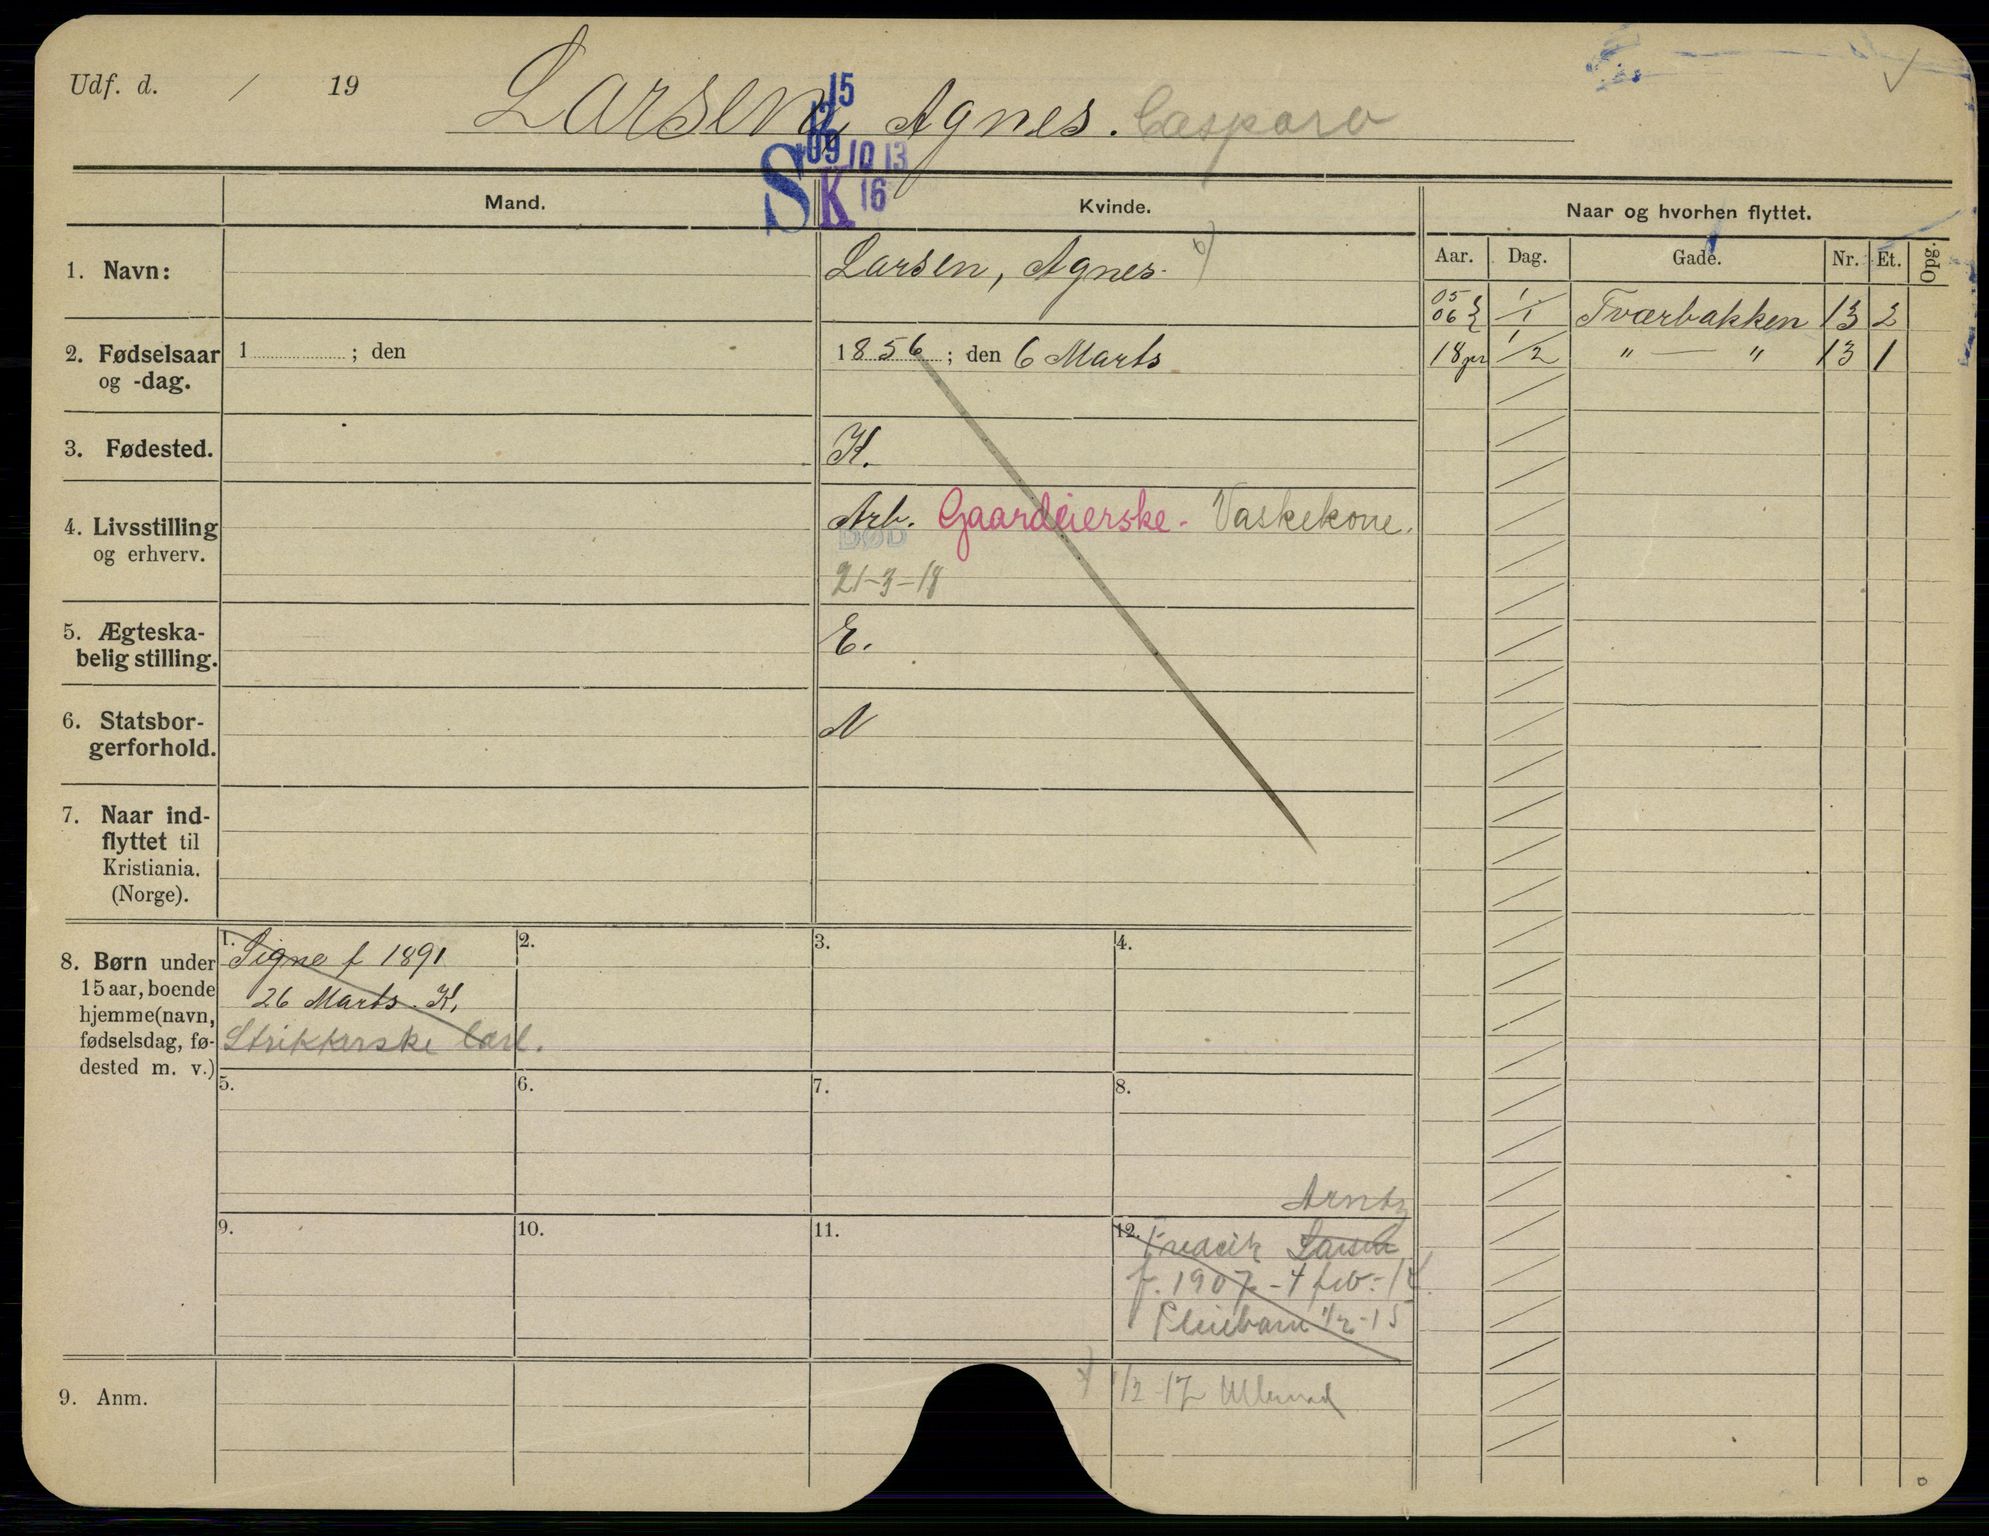 Udf. d. / 19
Larsen, Agnes. Caspara
15
12
09 10 13
S K 16
Mand.
Kvinde.
Naar og hvorhen flyttet.
Aar. Dag. Gade. Nr. Et. Opg.
1. Navn:
Larsen, Agnes.
05
06 1/1 Tværbakken 13 2
18 1/2 " — " 13 1
2. Fødselsaar
og -dag.
1 ; den
1856 ; den 6 Marts
3. Fødested.
K.
4. Livsstilling
og erhverv.
Arb. Gaardeierske. Vaskekone.
DØD
21-3-18
5. Ægteska-
belig stilling.
E.
6. Statsbor-
gerforhold.
N
7. Naar ind-
flyttet til
Kristiania.
(Norge).
8. Børn under
15 aar, boende
hjemme (navn,
fødselsdag, fø-
dested m. v.)
1. Signe f 1891
26 Marts. K.
Strikkerske
2.
3.
4.
5.
6.
7.
8.
9.
10.
11.
Arntz
12. Fredrik Larsen
f. 1907 - 4 feb.-14.
Pleiebarn 1/2-15
9. Anm.
1/2-17